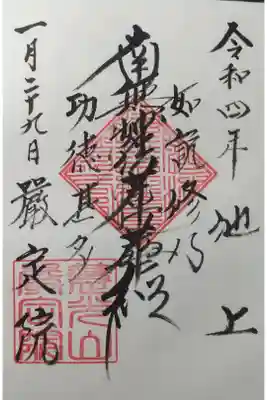 令和四年 池上
如説修行
南無妙法蓮華経
功徳甚多
一月二十九日 嚴定院